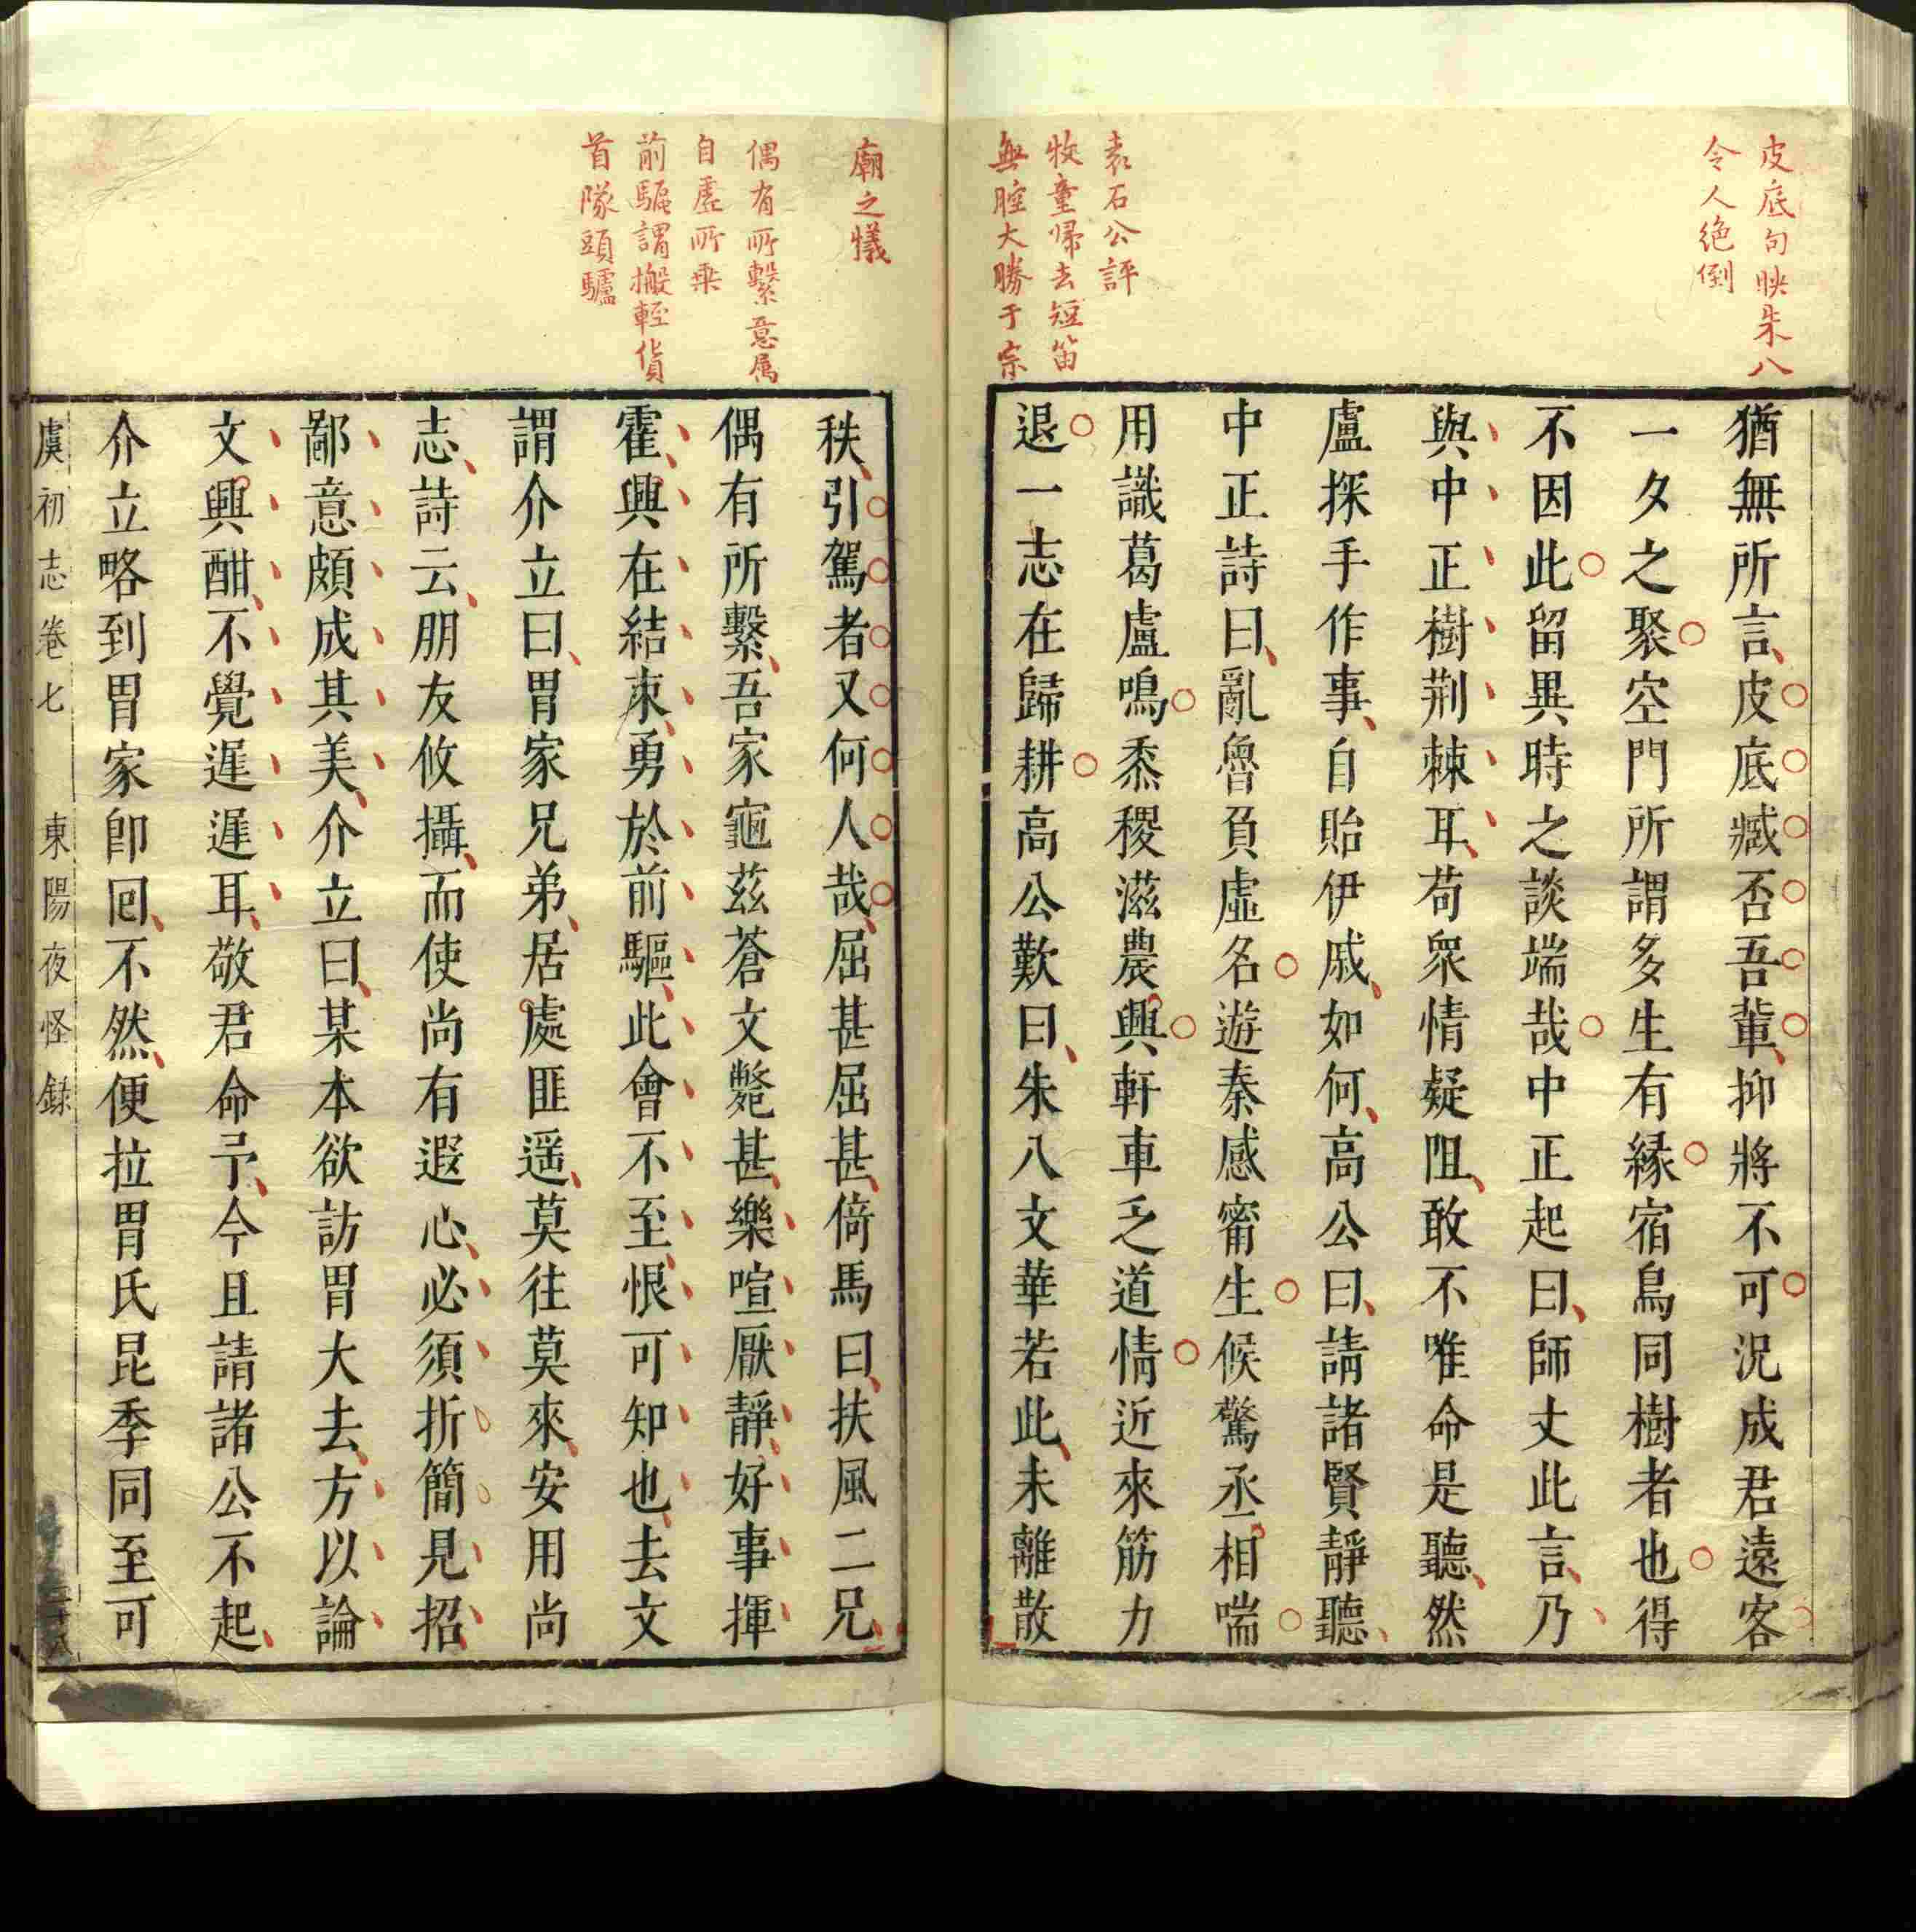 皮底句映朱八
令人絶倒
猶無所言皮底臧否吾輩抑將不可況成君遠客
一夕之聚空門所謂多生有縁宿鳥同樹者也得
不因此留異時之談端哉中正起曰師丈此言乃
與中正樹荆棘耳苟衆情疑阻敢不唯命是聽然
盧探手作事自貽伊戚如何高公曰請諸賢靜聽
中正詩曰亂魯負虛名遊秦感甯生候驚丞相喘
用識葛盧鳴黍稷滋農興軒車乏道情近來筋力
退一志在歸耕高公歎曰朱八文華若此未離散
袁石公評
牧童歸去短笛
無腔大勝于宗
廟之犧
秩引駕者又何人哉屈甚屈甚倚馬曰扶風二兄
偶有所繫吾家龜茲蒼文斃甚樂喧厭靜好事揮
霍興在結束勇於前驅此會不至恨可知也去文
謂介立曰胃家兄弟居處匪遥莫往莫來安用尚
志詩云朋友攸攝而使尚有遐心必須折簡見招
鄙意頗成其美介立曰某本欲訪胃大去方以論
文興酣不覺遲遲耳敬君命予今且請諸公不起
介立略到胃家卽囘不然便拉胃氏昆季同至可
偶有所繫意属
自處所乗
前驅謂搬輊貨
首隊頭驢
虞初志卷七
東陽夜怪錄